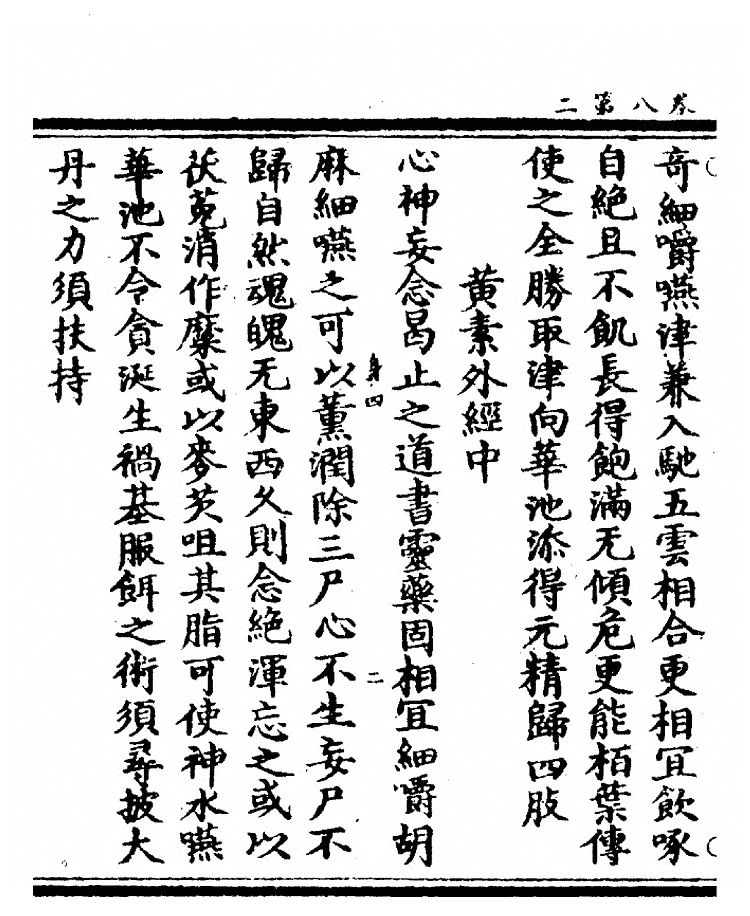 卷八第二
竒細嚼嚥津兼入馳五雲相合更相冝飲啄
自絶且不飢長得飽滿无傾危更能栢葉傳
使之全勝取津向華池添得元精歸四肢
黄素外經中
心神妄念曷止之道書靈藥固相冝細嚼胡
麻細嚥之可以薰潤除三尸心不生妄尸不
身四
二
歸自然魂魄无東西久則念絶渾忘之或以
茯菟消作糜或以麥芡咀其脂可使神水嚥
華池不令貪涎生禍基服餌之術須尋披大
丹之力須扶持